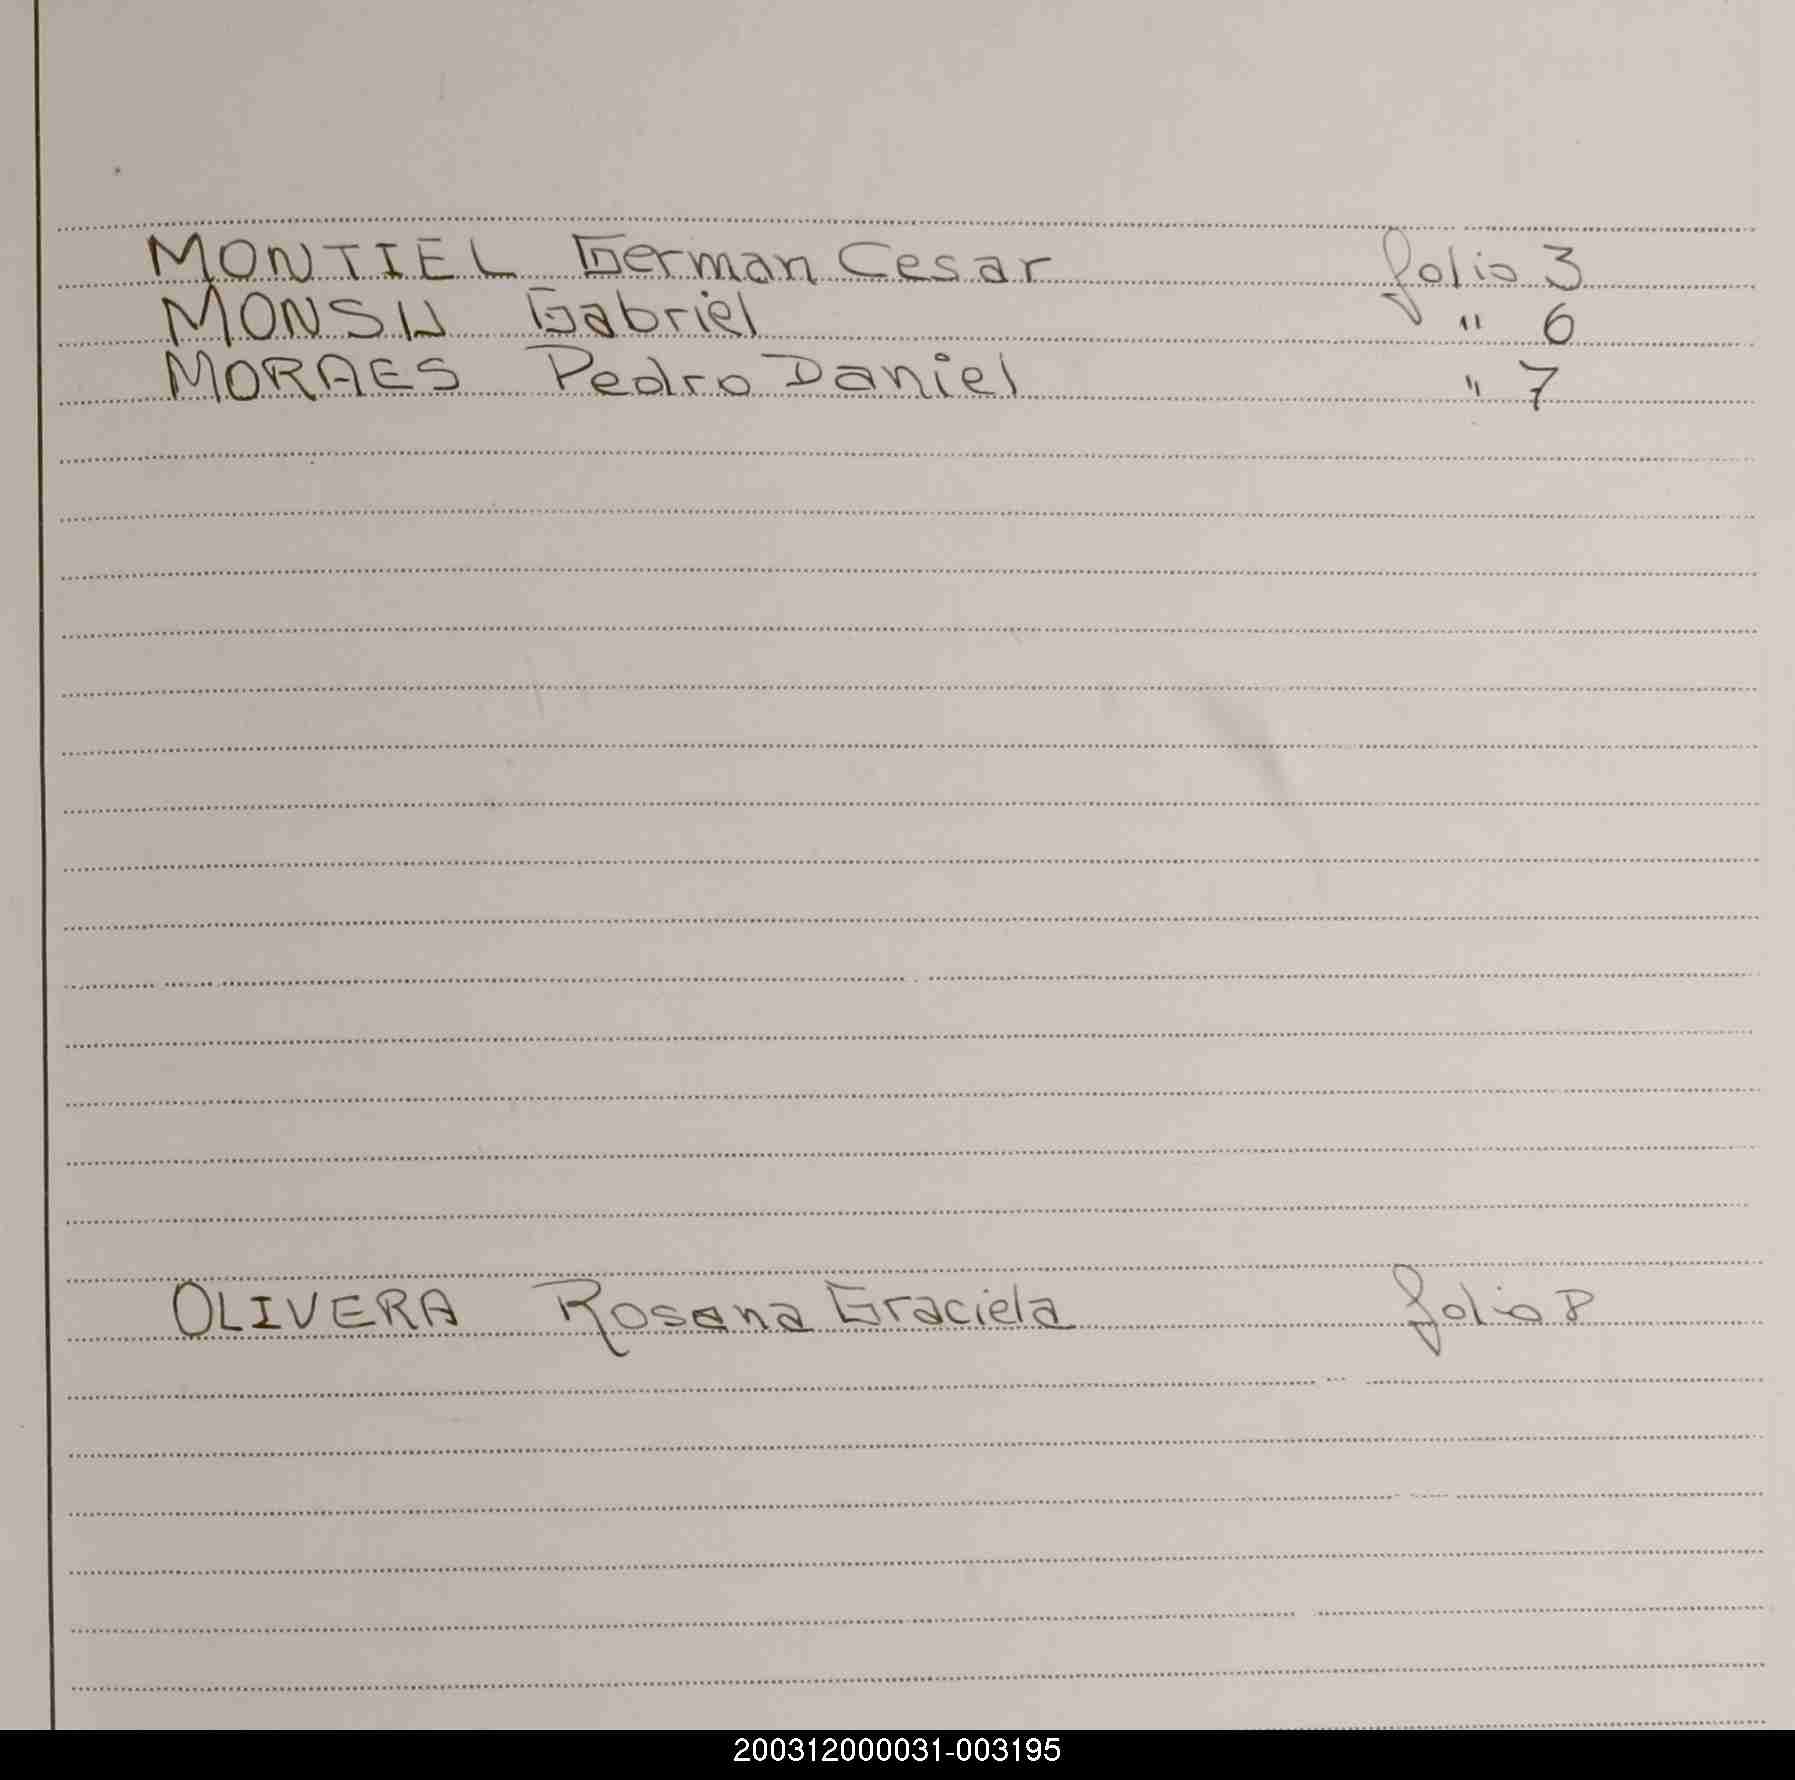 MONTIEL German Cesar folio 3
MONSU Gabriel " 6
MORAES Pedro Daniel " 7
OLIVERA Rosana Graciela folio 8
200312000031-003195